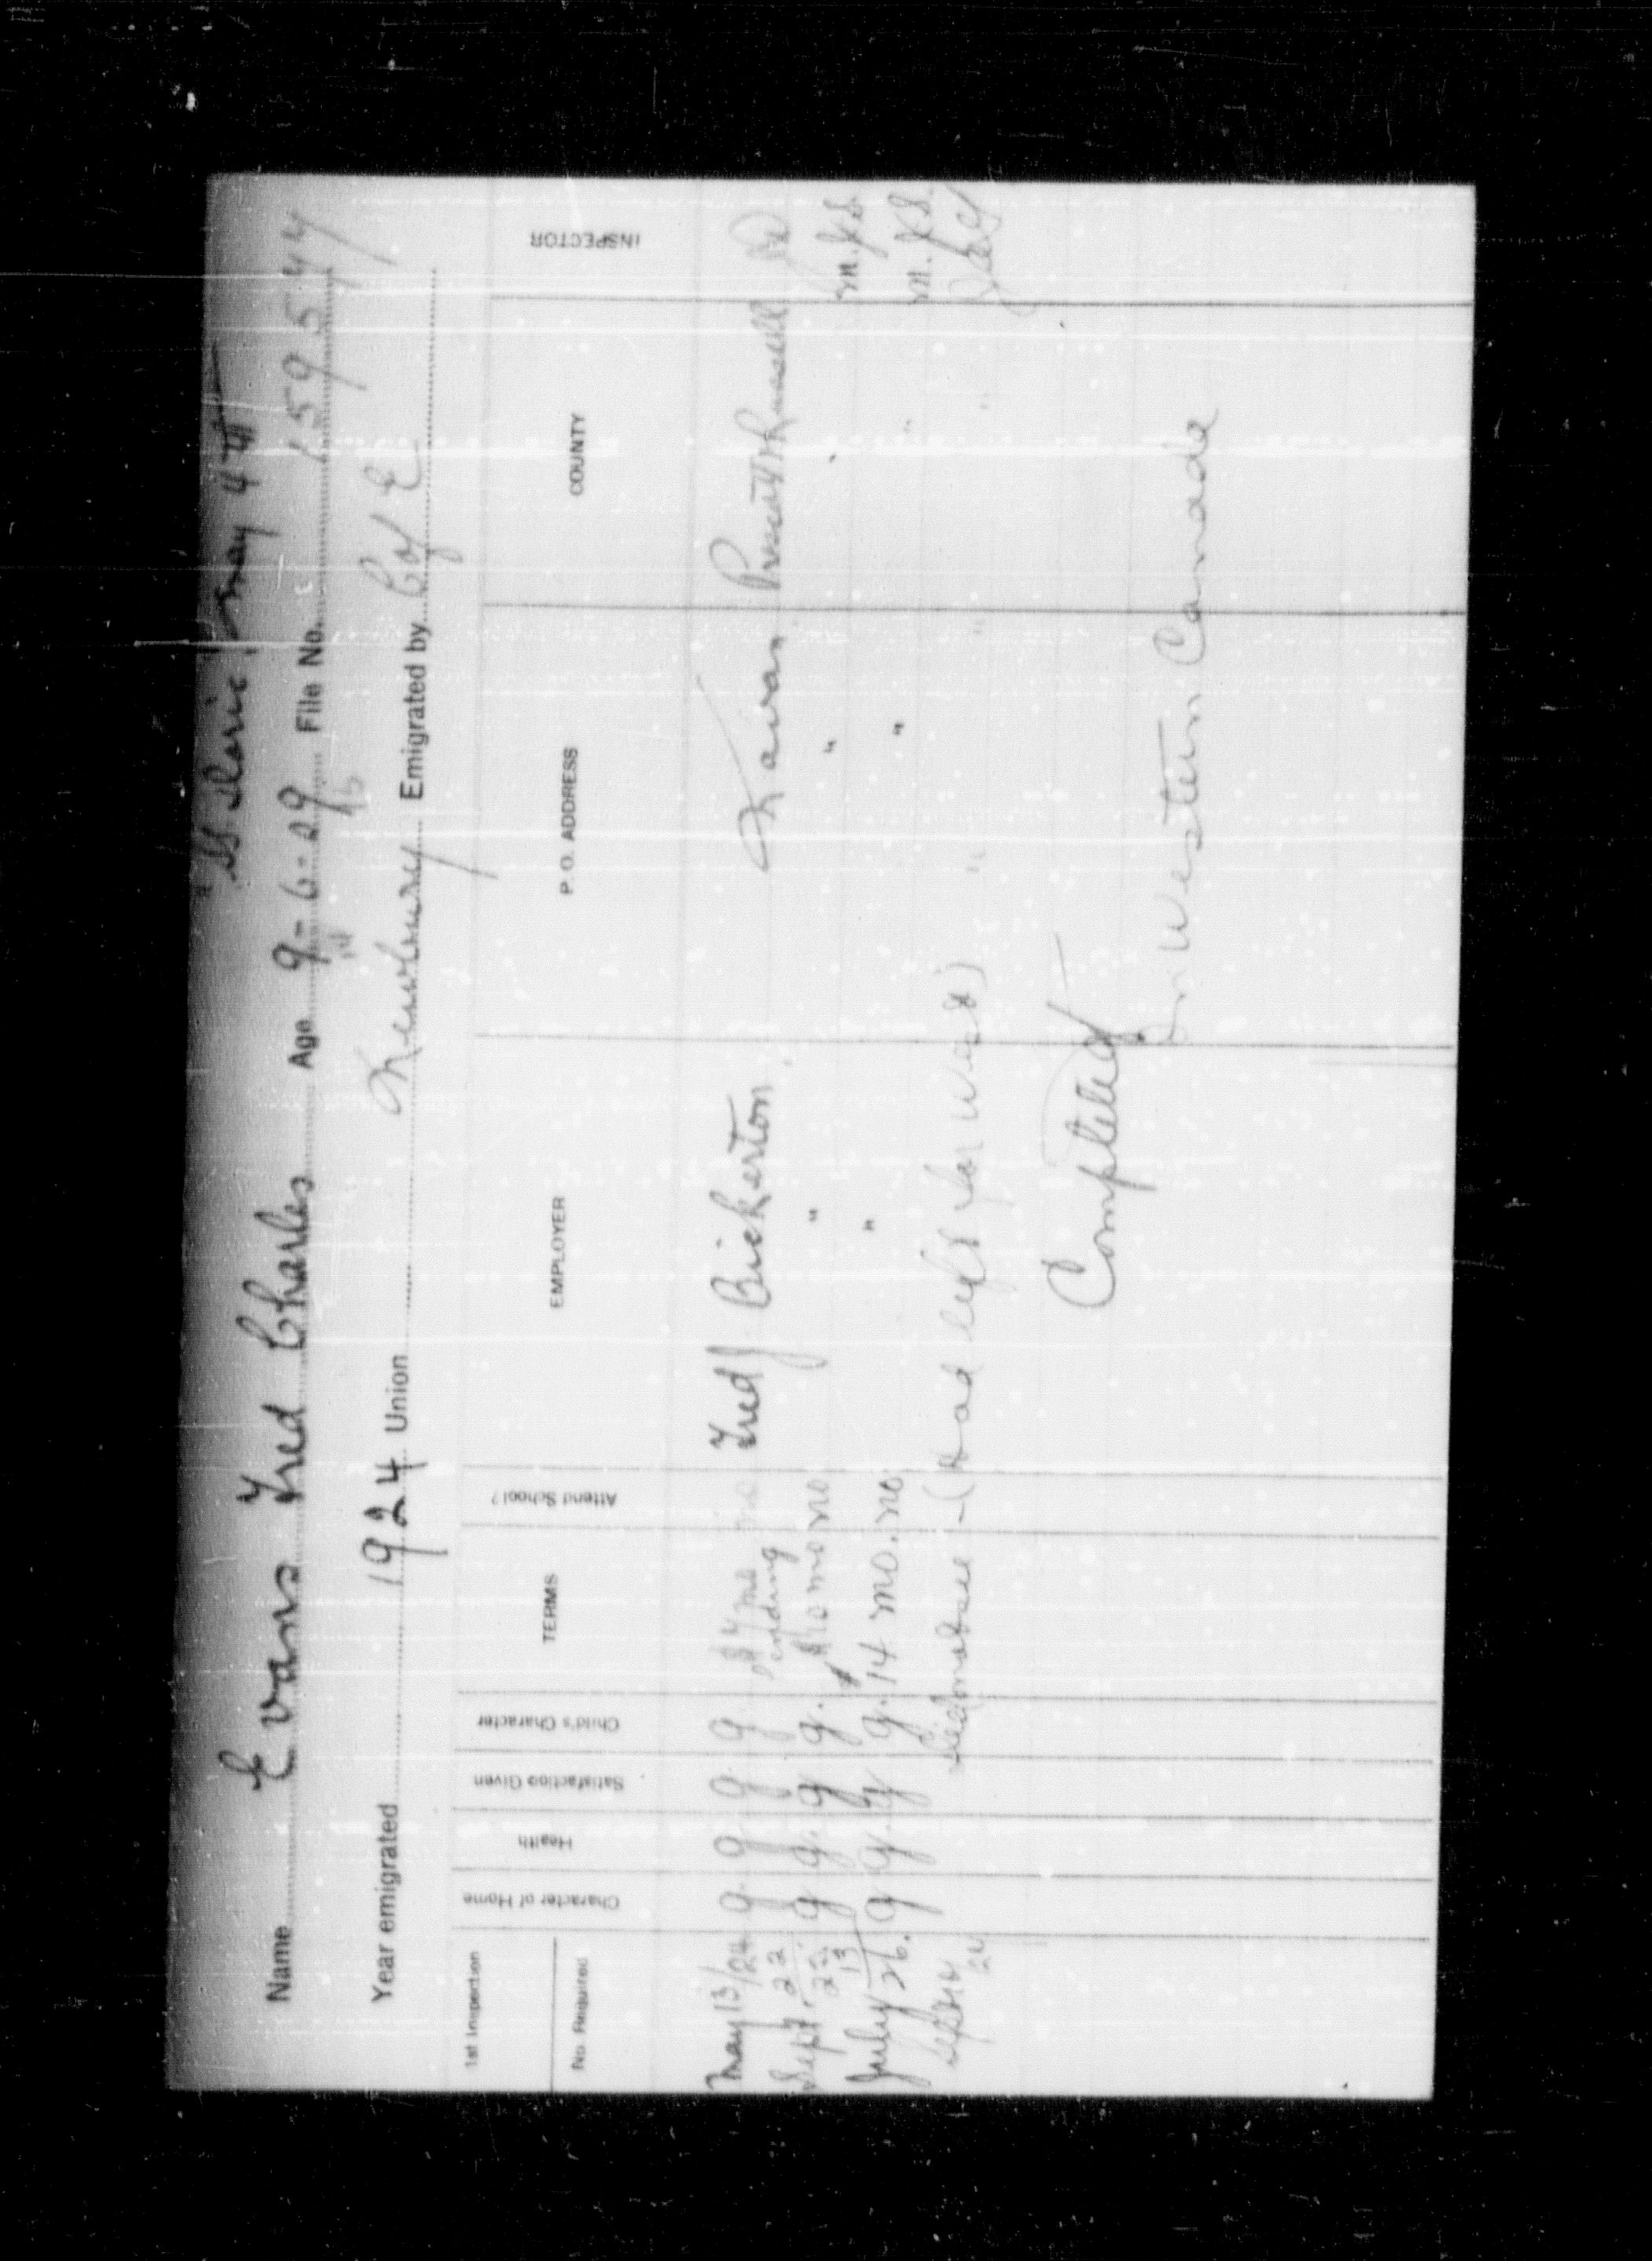 "SS Doric" May 4th
Name Evans Fred Charles Age 9-6-29 File No. 159544
Year emigrated 1924 Union Newbury Emigrated by C of E
1st Inspection
No. Required
Character of Home
Health
Satisfaction Given
Child's Character
TERMS
Attend School?
EMPLOYER
P. O. ADDRESS
COUNTY
INSPECTOR
May 13/24 g. g g g no Fred J Bickerton Navan Prescott & Russell
ending
Sept. 22 g g. g g. mo no " " m.
July 13 26. g g. g g. 14 mo. no " " " m.
(Had left for West) " " "
Completed
In Western Canada